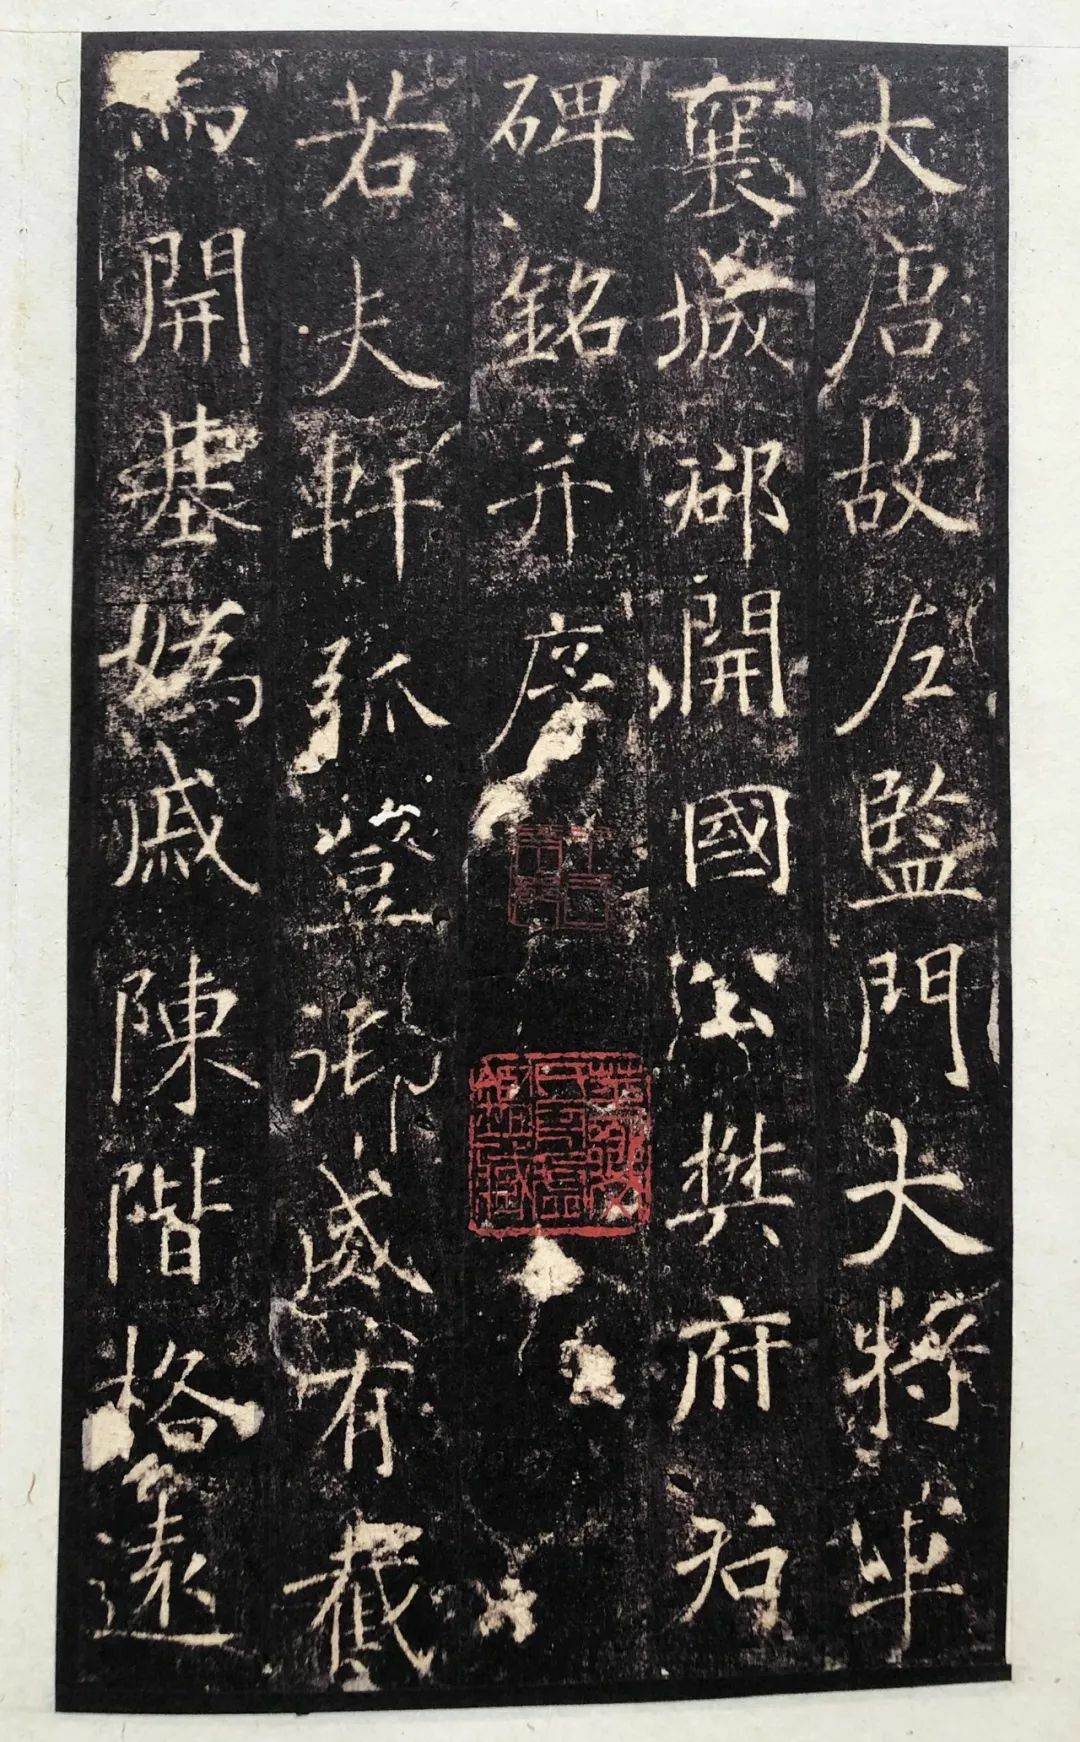 大唐故左監門大將軍
襄城郡開國公樊府君
碑銘并序
若夫軒弧登御感有截
而開基媯戚陳階格遠